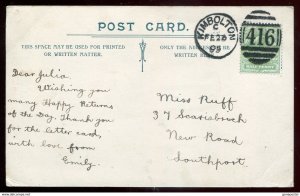 POST CARD.
THIS SPACE MAY BE USED FOR PRINTED
OR WRITTEN MATTER.
ONLY THE
TO BE WRITTEN
KIMBOLTON
C
FE 28
05
416
HALFPENNY
Dear Julia
Wishing you
many Happy Returns
of the Day. Thank you
for the letter cards,
with love from
Emily.
Miss Ruff
37 Scarisbrick
New Road
Southport